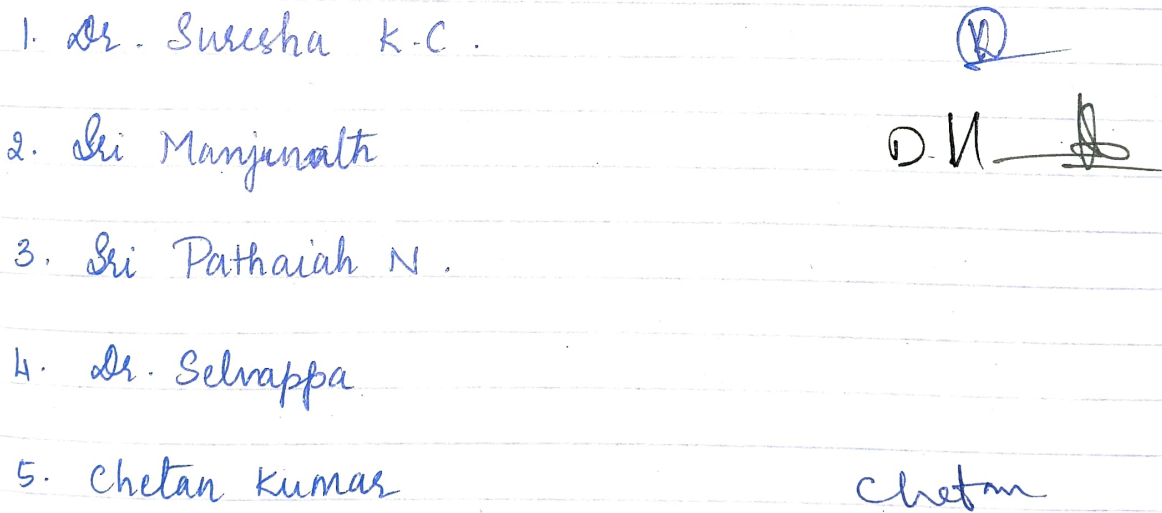 1. Dr. Suresha K.C.
2. Sri Manjunath D.N
3. Sri Pathaiah N.
4. Dr. Selvappa
5. Chetan Kumar Chetan